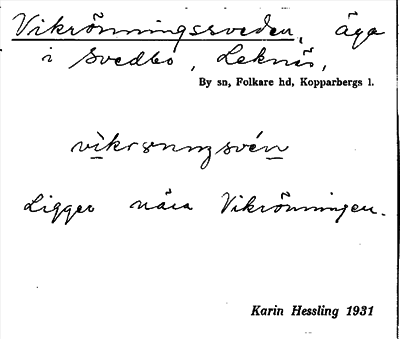 Vikrönningssveden, äga
i Svedbo, Leknäs,
By sn, Folkare hd, Kopparbergs l.
Ligger nära Vikrönningen.
Karin Hessling 1931